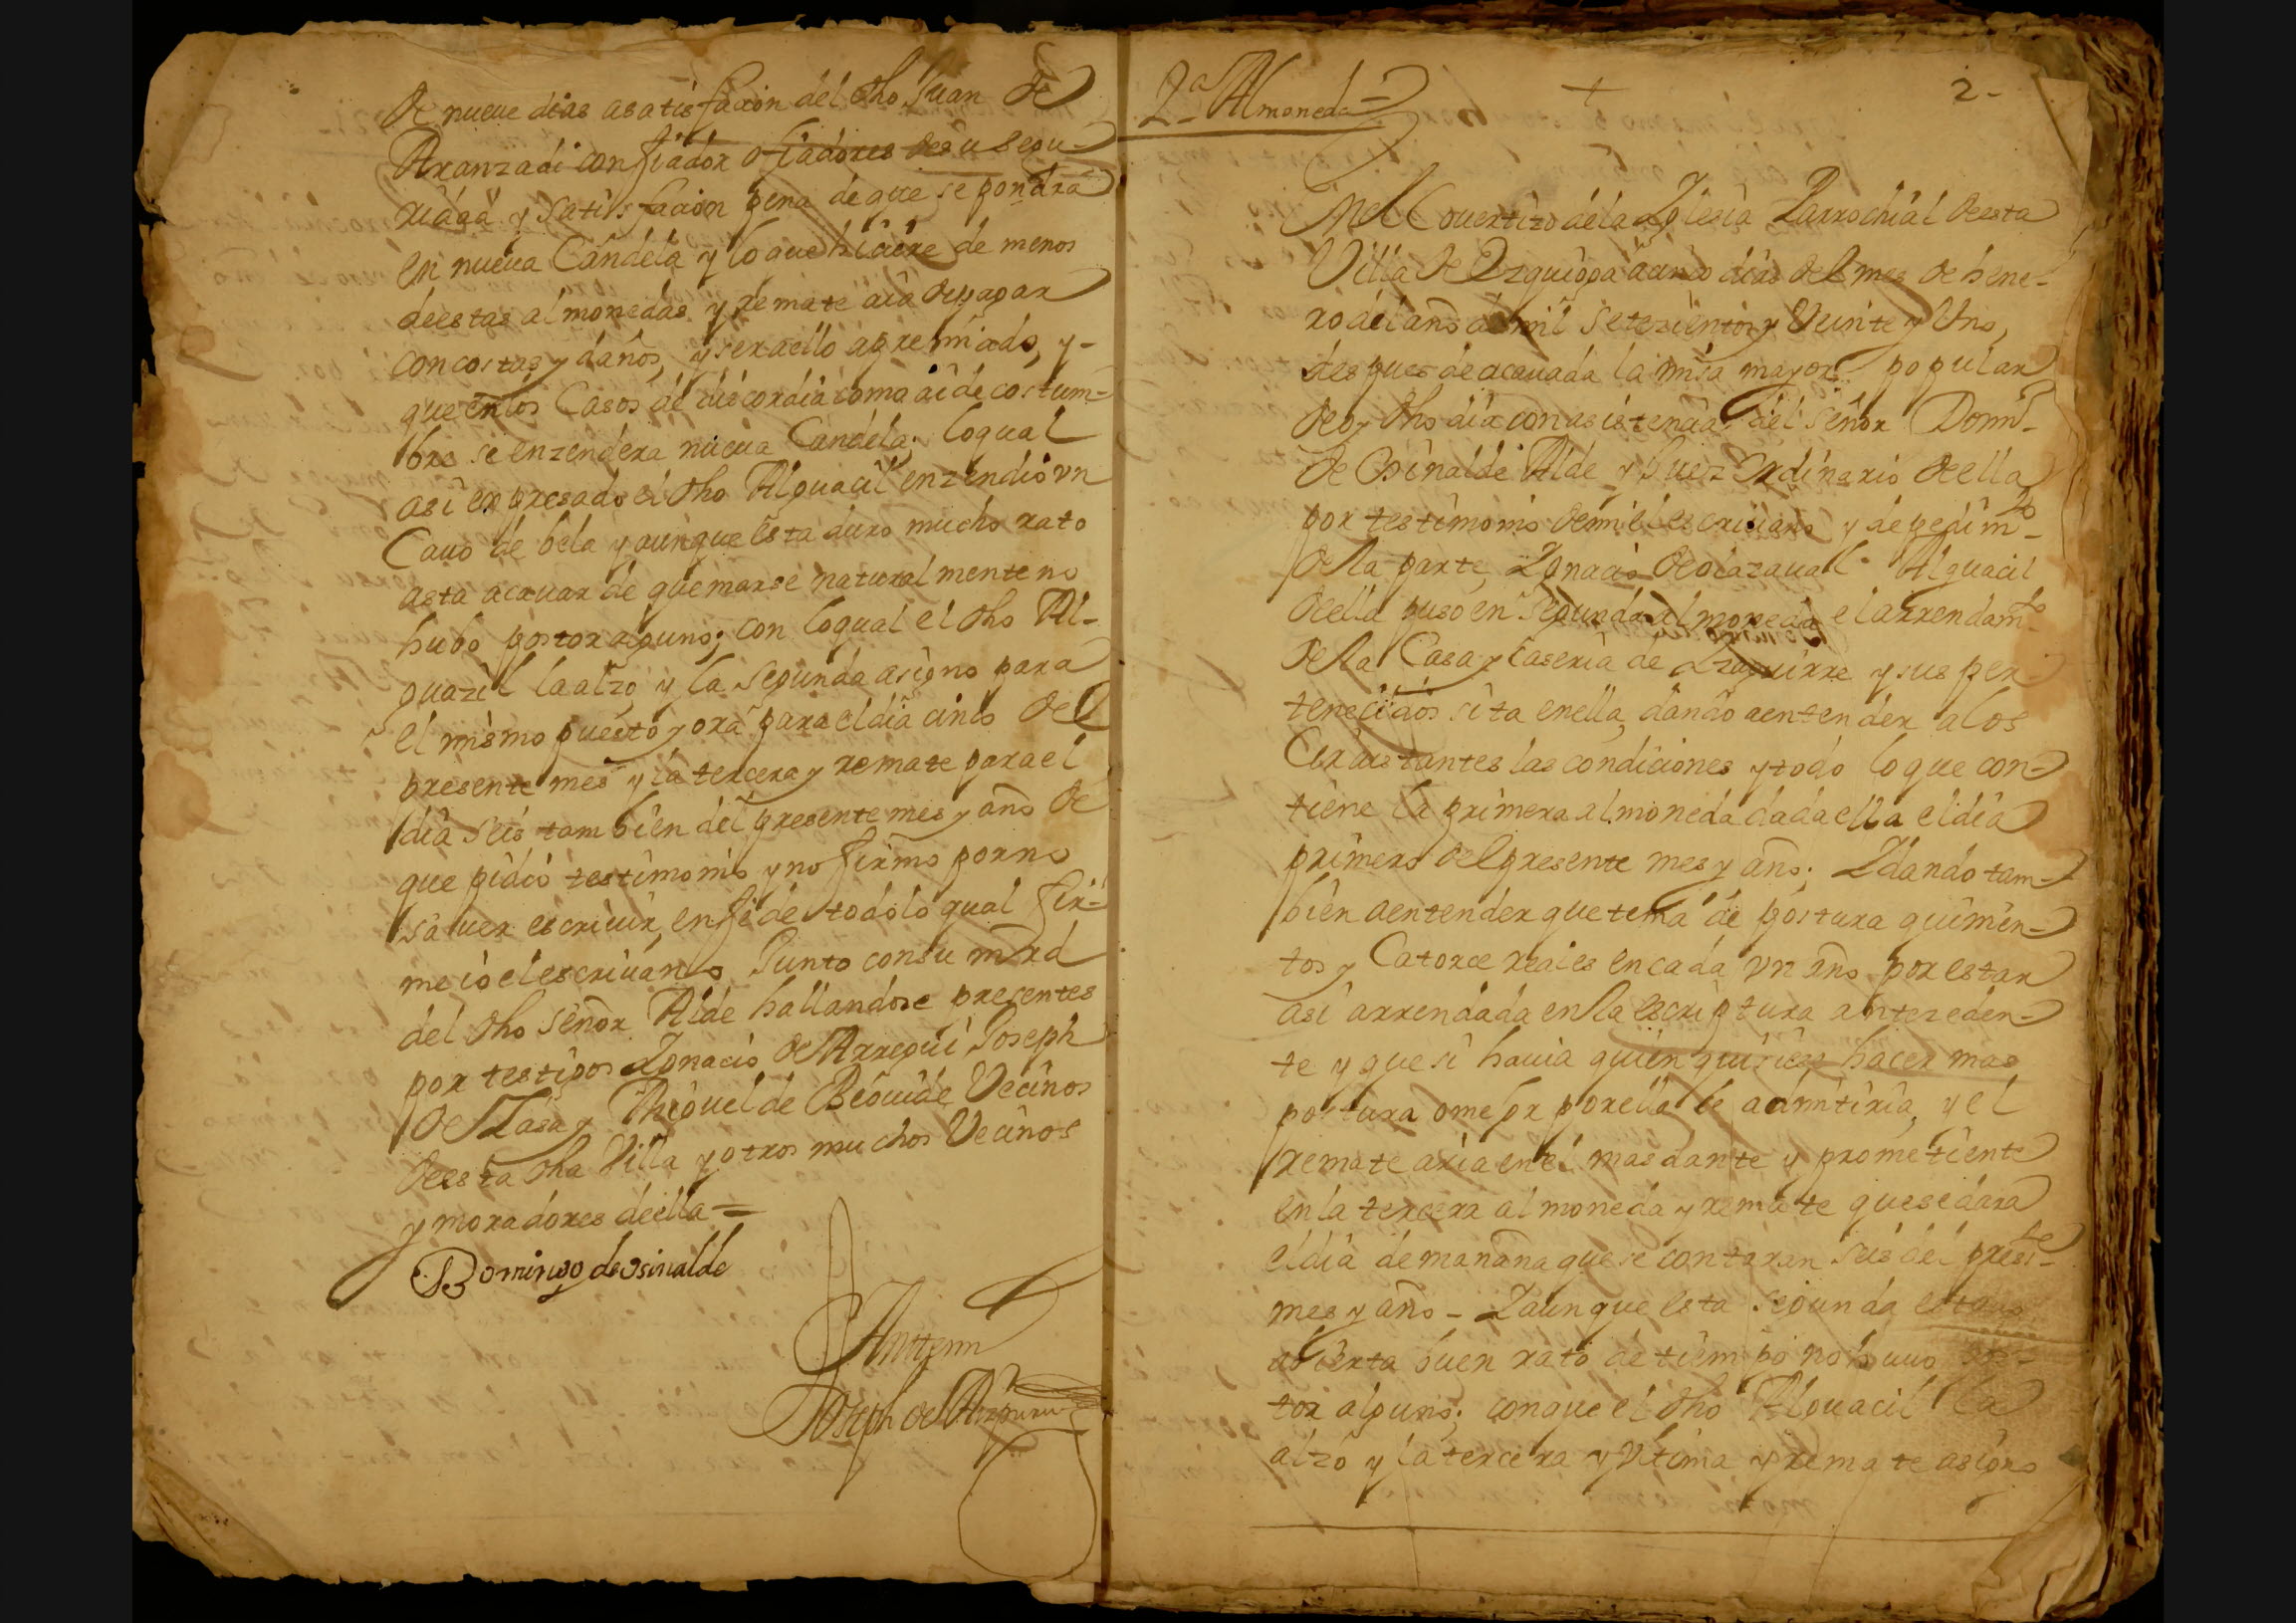 de nueue dias a satisfaxion del dho Juan de
Aranzadi con fiador o fiadores de su segu-
ridad y satisfacion pena de que se pondra
en nueua Candela y lo que hiciere de menos
de estas almonedas y remate aia de pagar
con costas y daños, y sera ello apremiado, y-
que en los Casos de discordia como ai de costum-
bre se enzendera nueua Candela; lo qual
asi expresado el dho Alguacil enzendio vn
Cauo de bela y aunque esta duro mucho rato
asta acauar de quemarse naturalmente no
hubo postor alguno; con lo qual el dho Al-
guazil la alzo y la segunda asigno para
el mismo puesto y ora para el dia cinco del
presente mes y la tercera y remate para el
dia seis tambien del presente mes y año de
que pidio testimonio y no firmo por no
sauer escriuir, en fe de todo lo qual fir-
me io el escriuano Junto con su mrd
del dho señor Alde hallandose presentes
por testigos Ignacio de Arregui Joseph
de Lasa y Miguel de Beouide Vecinos
de esta dha Villa y otros muchos Vecinos
y moradores de ella =
Domingo de Osinalde
Anttemi
Joseph de Aizpuru
2ª Almoneda =
2-
En el Couertizo de la Iglesia Parrochial de esta
Villa de Ezquioga a cinco dias del mes de hene-
ro del año de mil setezientos y Veinte y Uno,
despues de acauada la misa mayor popular
de oy dho dia con asistencia del señor Domº
de Osinalde Alde y Juez Ordinario de ella
por testimonio de mi el escriuano y de pedimto
de la parte, Ignacio de Olazaual Alguacil
de ella puso en segunda almoneda el arrendamto
de la Casa y Caseria de Izaguirre y sus per-
tenecidos sita en ella, dando a entender a los
Circunstantes las condiciones y todo lo que con-
tiene la primera almoneda dada ella el dia
primero del presente mes y año; I dando tam-
bien a entender que tenia de postura quinien-
tos y Catorce reales en cada vn año por estar
asi arrendada en la escriptura antezeden-
te y que si hauia quien quisiese hacer mas
postura o mejor por ella se admitiria, y el
remate aria en el mas dante y prometiente
en la tercera almoneda y remate que se dara
el dia de mañana que se contaran seis del preste
mes y año - I aunque esta segunda estuuo
abierta buen rato de tiempo no huuo pos-
tor alguno; con que el dho Alguacil la
alzo y la tercera y Vltima y remate asigno